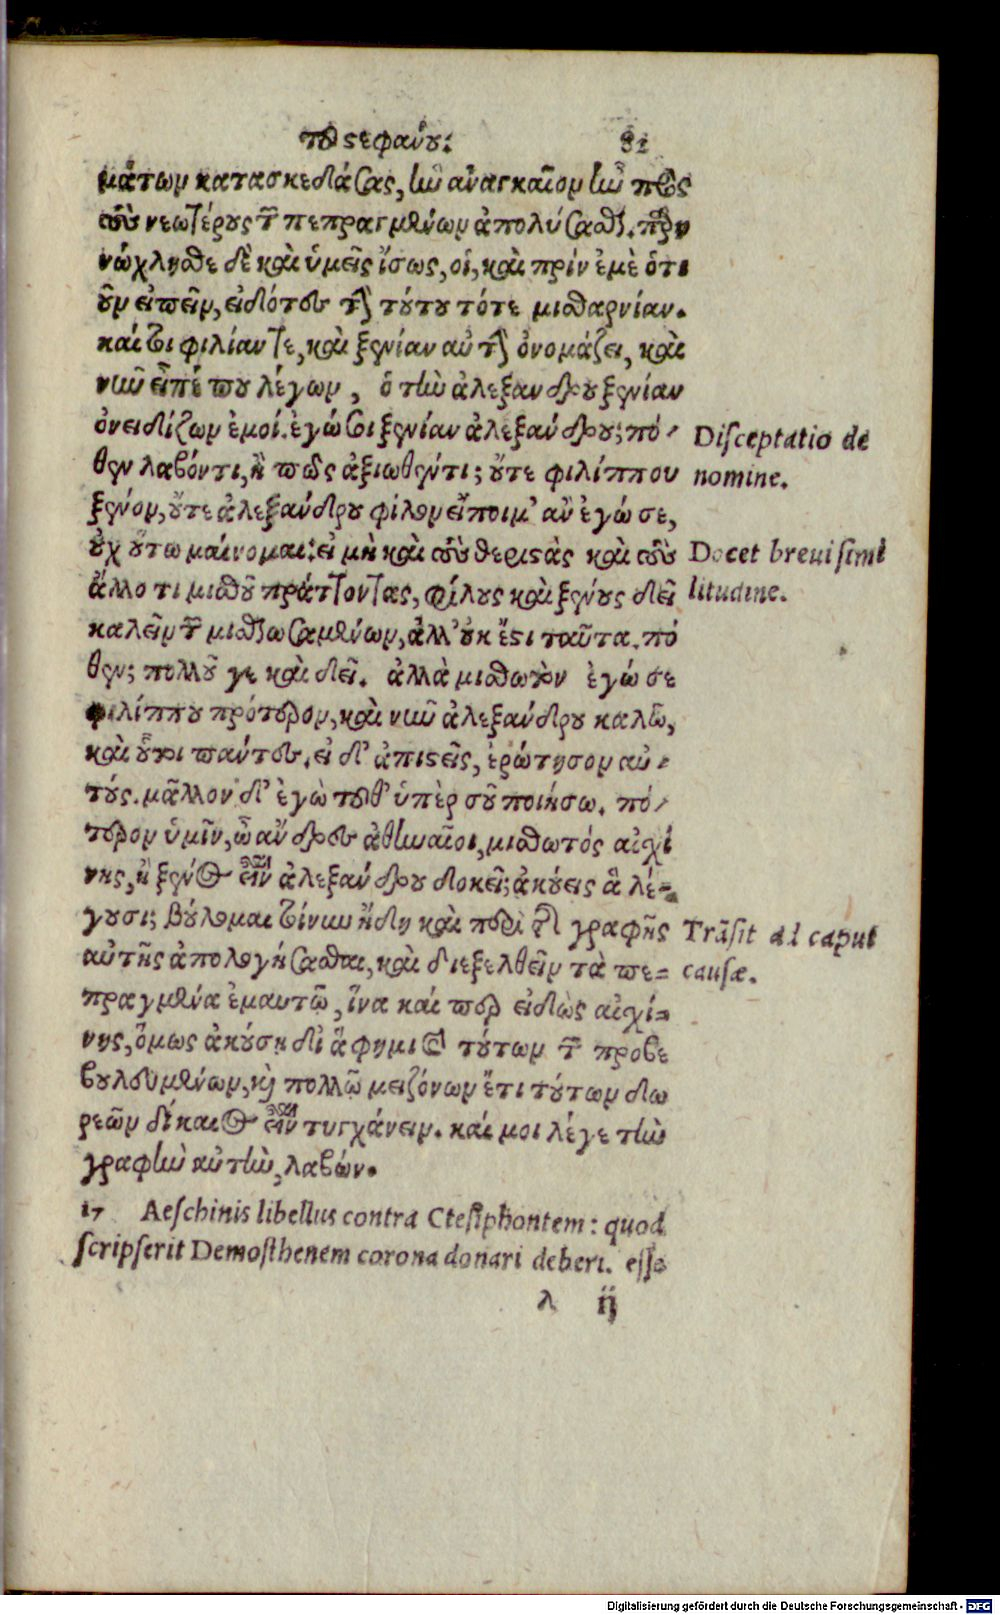 τοῦ στεφάνου. 82
μάτων κατασκεδάσας, ἣν ἀναγκαῖον ἦν πρὸς
τοὺς νεωτέρους τῶν πεπραγμένων ἀπολύσασθαι. παρη
νώχλησθε δὲ καὶ ὑμεῖς ἴσως, οἱ, καὶ πρὶν ἐμὲ ὁτι
οῦν εἰπεῖν, εἰδότες τὴν τούτου τότε μισθαρνίαν.
καί τοι φιλίαν τε, καὶ ξενίαν αὐτὴν ὀνομάζει, καὶ
νῦν εἶπέ που λέγων, ὁ τὴν ἀλεξάνδρου ξενίαν
ὀνειδίζων ἐμοί. ἐγώ σοι ξενίαν ἀλεξάνδρου; πό-
θεν λαβόντι, ἢ πῶς ἀξιωθέντι; οὔτε φιλίππου
ξένον, οὔτε ἀλεξάνδρου φίλον εἴποιμ' ἂν ἐγώ σε,
οὐχ οὕτω μαίνομαι: εἰ μὴ καὶ τοὺς θεριστὰς καὶ τοὺς
ἄλλο τι μισθοῦ πράττοντας, φίλους καὶ ξένους δεῖ
καλεῖν τῶν μισθωσαμένων, ἀλλ' οὐκ ἔστι ταῦτα. πό
θεν; πολλοῦ γε καὶ δεῖ. ἀλλὰ μισθωτὸν ἐγώ σε
φιλίππου πρότερον, καὶ νῦν ἀλεξάνδρου καλῶ,
καὶ οὗτοι πάντες. εἰ δ' ἀπιστεῖς, ἐρώτησον αὐ-
τούς. μᾶλλον δ' ἐγὼ τοῦθ' ὑπὲρ σοῦ ποιήσω. πό-
τερον ὑμῖν, ὦ ἄνδρες ἀθηναῖοι, μισθωτός αἰσχί
νης, ἢ ξένος εἶναι ἀλεξάνδρου δοκεῖ; ἀκούεις ἃ λέ-
γουσι; βούλομαι τοίνυν ἤδη καὶ περὶ τῆς γραφῆς
αὐτῆς ἀπολογήσασθαι, καὶ διεξελθεῖν τὰ πε-
πραγμένα ἐμαυτῷ, ἵνα καί περ εἰδὼς αἰσχί-
νης, ὅμως ἀκούσῃ δι' ἅ φημι καὶ τούτων τῶν προβε
βουλευμένων, καὶ πολλῷ μειζόνων ἔτι τούτων δω
ρεῶν δίκαιος εἶναι τυγχάνειν. καί μοι λέγε τὴν
γραφὴν αὐτὴν, λαβών.
17 Aeschinis libellus contra Ctesiphontem: quod
scripserit Demosthenem corona donari deberi. esse
λ ij
Disceptatio de
nomine.
Docet breui simi
litudine.
Trāsit ad caput
causæ.
Digitalisierung gefördert durch die Deutsche Forschungsgemeinschaft - DFG